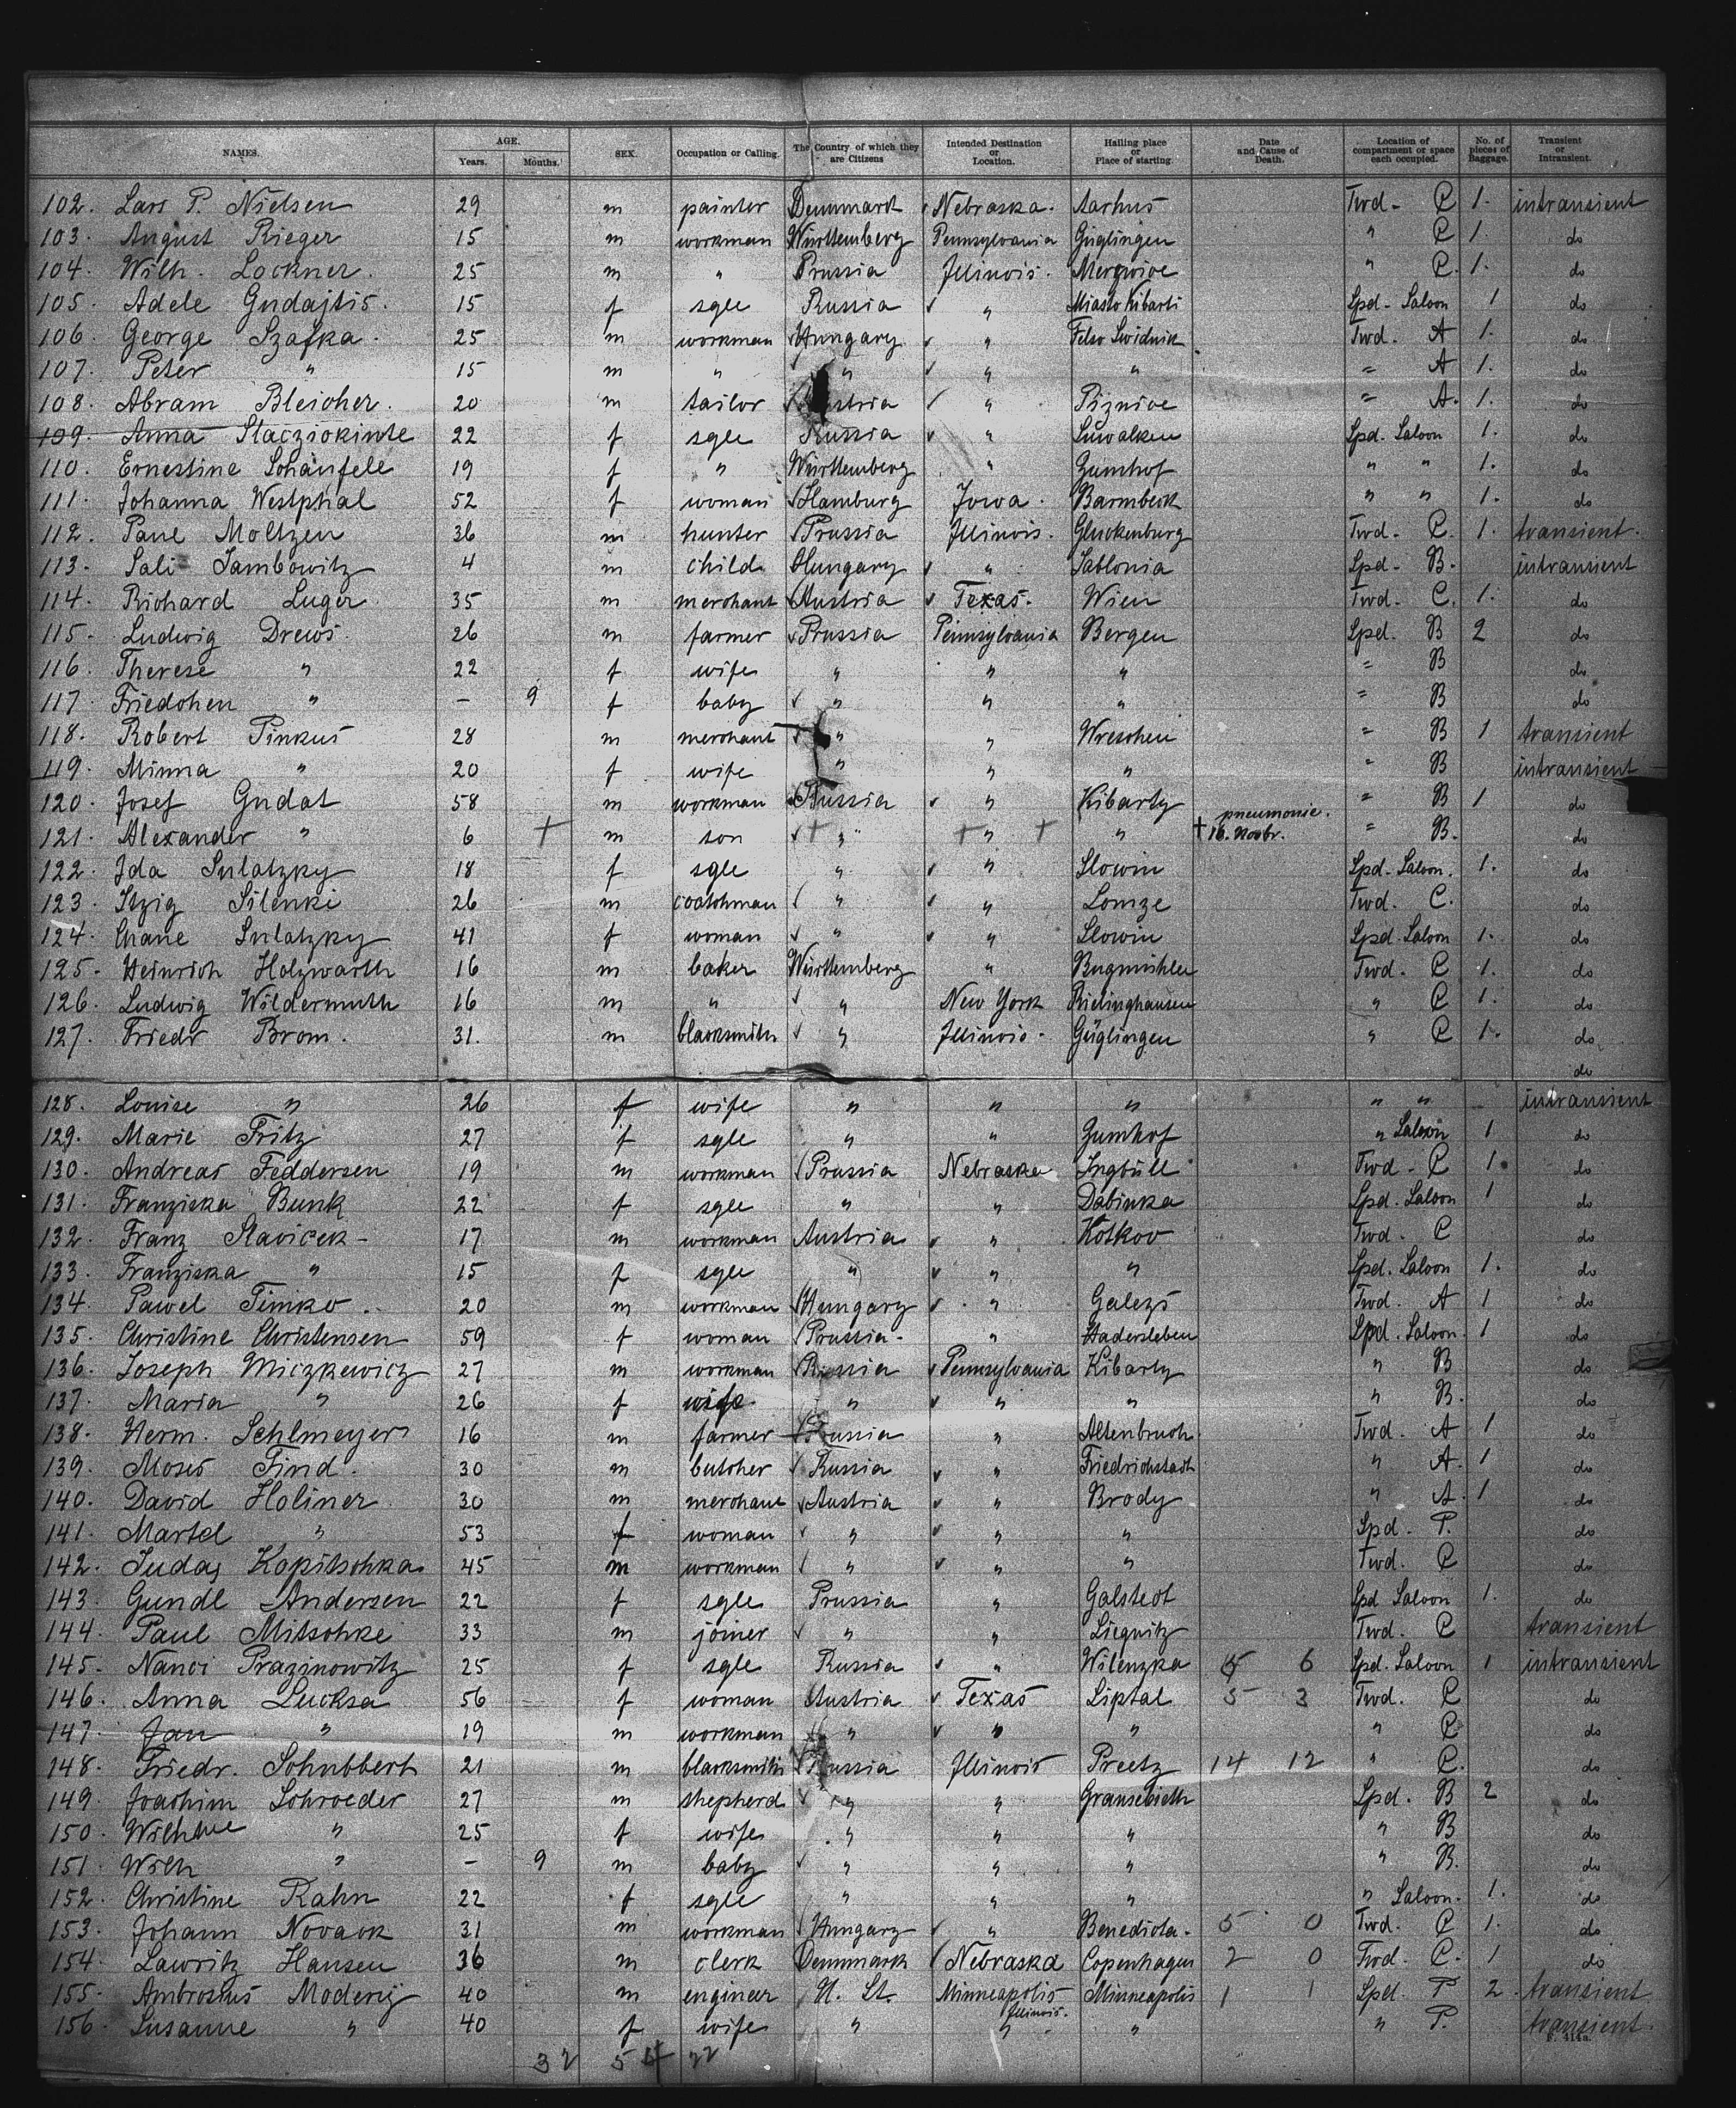 NAMES. AGE. Years. Months. SEX. Occupation or Calling. The Country of which they are Citizens Intended Destination or Location. Hailing place or Place of starting. Date and Cause of Death. Location of compartment or space each occupied. No. of pieces of Baggage. Transient or Intransient.
102. Lars P. Nielsen 29 m painter Denmark Nebraska. Aarhus Twd - C 1. intransient
103. August Rieger 15 m workman Württemberg Pennsylvania Güglingen " C 1. do
104. Wilh. Lockner. 25 m " Prussia Illinois. " C. 1. do
105. Adele Gudajtis. 15 f sgle Russia " Miasto Kibarti Spd - Saloon 1 do
106. George Szafka. 25 m workman Hungary " Felso Swidnik Twd. A 1. do
107. Peter " 15 m " " " " " A 1. do
108. Abram Bleicher. 20 m tailor Austria " " A. 1. do
109. Anna 22 f sgle Russia " Suwalken Spd. Saloon 1. do
110. Ernestine Schäufele 19 f " Württemberg " Zumhof " " 1. do
111. Johanna Westphal 52 f woman Hamburg Iowa. Barmbeck " " 1. do
112. Paul Moltzen 36 m hunter Prussia Illinois. Gluckenburg Twd - C. 1. transient.
113. Sali Jambowitz 4 m child Hungary " Jablonia Spd - B. intransient
114. Richard Luger 35 m merchant Austria Texas. Wien Twd - C. 1. do
115. Ludwig Drews. 26 m farmer Prussia Pennsylvania Bergen Spd. B 2 do
116. Therese " 22 f wife " " " " B do
117. Friedchen " - 9 f baby " " " " B do
118. Robert Pinkus 28 m merchant " " Wreschen " B 1 transient
119. Minna " 20 f wife " " " " B intransient
120. Josef Gudat 58 m workman Russia " Kibarty " B 1 do
121. Alexander " 6 + m son + " + " + " † pneumonie. 16. Novbr. " B. do
122. Ida Sulatzky 18 f sgle " " Slowin Spd - Saloon. 1. do
123. Itzig Silenki 26 m coatchman " " Lomze Twd. C. do
124. Chane Sulatzky 41 f woman " " Slowin Spd. Saloon 1. do
125. Heinrich Holzwarth 16 m baker Württemberg " Bugmühler Twd - C 1. do
126. Ludwig Wildermuth 16 m " " New York Rielinghausen " C 1. do
127. Friedr Brom. 31. m blacksmith " Illinois. Güglingen " C 1. do
do
128. Louise " 26 f wife " " " " " intransient
129. Marie Fritz 27 f sgle " " Zumhof " Saloon 1 do
130. Andreas Feddersen 19 m workman Prussia Nebraska Ingbüll Twd - C 1. do
131. Franziska Bunk 22 f sgle " " Dabinka Spd. Saloon 1 do
132. Franz Slavicek - 17 m workman Austria " Kotkov Twd. C do
133. Franziska " 15 f sgle " " " Spd. Saloon 1. do
134. Pawel Timko 20 m workman Hungary " Galezs Twd. A 1 do
135. Christine Christensen 59 f woman Prussia. " Hadersleben Spd. Saloon 1 do
136. Joseph Miczkewicz 27 m workman Russia Pennsylvania Kibarty " B do
137. Maria " 26 f wife. " " " " B. do
138. Herm. Sehlmeyer 16 m farmer Prussia " Altenbruch Twd. A 1 do
139. Moses Find. 30 m butcher Russia " Friedrichstadt " A. 1 do
140. David Holiner 30 m merchant Austria " Brody " A. 1 do
141. Martel " 53 f woman " " " Spd. P. do
142. Judas Kopitschka 45 m workman " " " Twd. C do
143. Gundl Andersen 22 f sgle Prussia " Galstedt Spd Saloon 1. do
144. Paul Mitschke 33 m joiner " " Liegnitz Twd. C transient
145. Nanci Prazinowitz 25 f sgle Russia " Wilenzka 5 6 Spd. Saloon 1 intransient
146. Anna Lucksa 56 f woman Austria Texas Liptal 5 3 Twd. C do
147. Jan " 19 m workman " " " " C do
148. Friedr. Schubbert 21 m blacksmith Prussia Illinois Preetz 14 12 " C. do
149. Joachim Schroeder 27 m shepherd " " Gransebieth Spd. B 2 do
150. Wilhlme " 25 f wife " " " " B do
151. Wilh " - 9 m baby " " " " B. do
152. Christine Rahn 22 f sgle " " " " Saloon. 1. do
153. Johann Novack 31 m workman Hungary " Benedicta. 5 0 Twd. C 1. do
154. Lawritz Hansen 36 m clerk Denmmark Nebraska Copenhagen 2 0 Twd. C. 1 do
155. Ambrosius Moderig 40 m engineer U. St. Minneapolis Minneapolis 1 1 Spd. P 2. transient
156. Susanne " 40 f wife " Illinois. " " " P. transient.
32 54 22